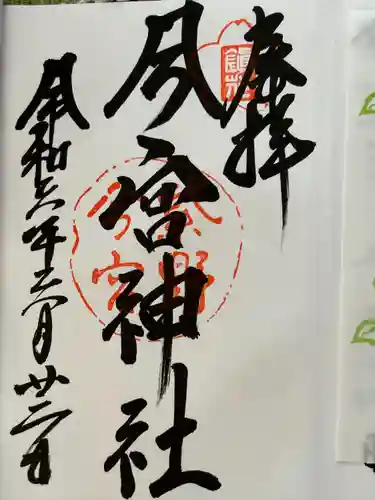 奉拝
今宮神社
令和六年六月廿二日